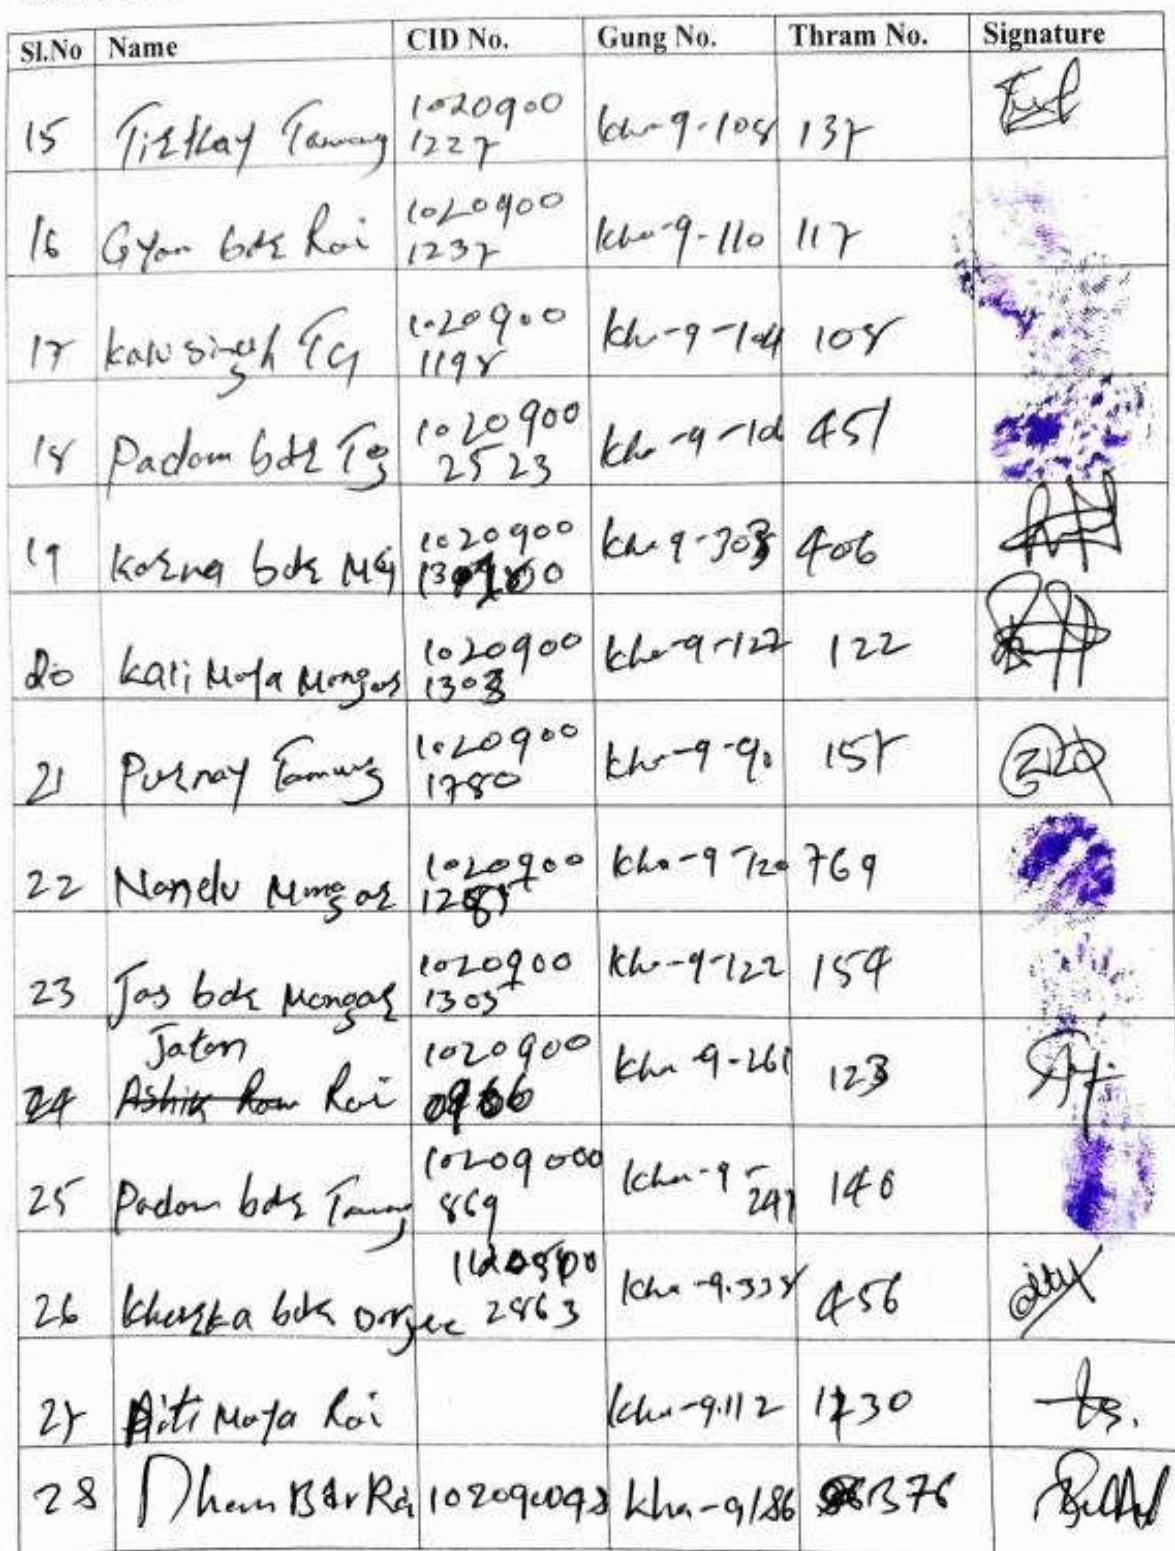 Sl.No Name CID No. Gung No. Thram No. Signature
15 Tirthay Tamang 1020900 1227 kha-9-108 137
16 Gyan bdr Rai 1020900 1237 kha-9-110 117
17 kalu singh TG 1020900 1198 kha-9-104 108
18 Padam bdr TG 1020900 2523 kha-9-10 451
19 Karna bdr MG 1020900 kha-9-303 406
20 Kali Maya Mongar 1020900 1303 kha-9-127 122
21 Purnay Tamang 1020900 1780 kha-9-90 157
22 Nandu Mongar 1020900 kha-9-120 769
23 Jas bdr Mongar 1020900 1305 kha-9-122 154
Jatan
24 Ashik Ram Rai 1020900 0966 kha-9-261 123
25 Padam bdr Tamang 10209000 869 kha-9-241 146
26 Kharka bdr Dorjee 2863 kha-9.338 456
27 Aiti Maya Rai kha-9.112 1730
28 Dham Bdr Rai 102090093 kha-9/86 376